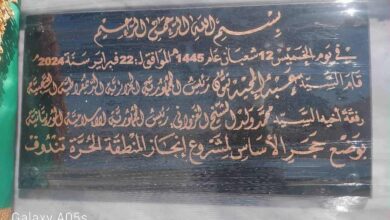 بسم الله الرحمن الرحيم
في يوم الخميس 12 شعبان عام 1445هـ الموافق لـ: 22 فبراير سنة 2024
قام السيد عبد المجيد تبون رئيس الجمهورية الجزائرية الديمقراطية الشعبية
رفقة أخيه السيد محمد ولد الشيخ الغزواني رئيس الجمهورية الإسلامية الموريتانية
بوضع حجر الأساس لمشروع إنجاز المنطقة الحرة تندوف
Galaxy A05s